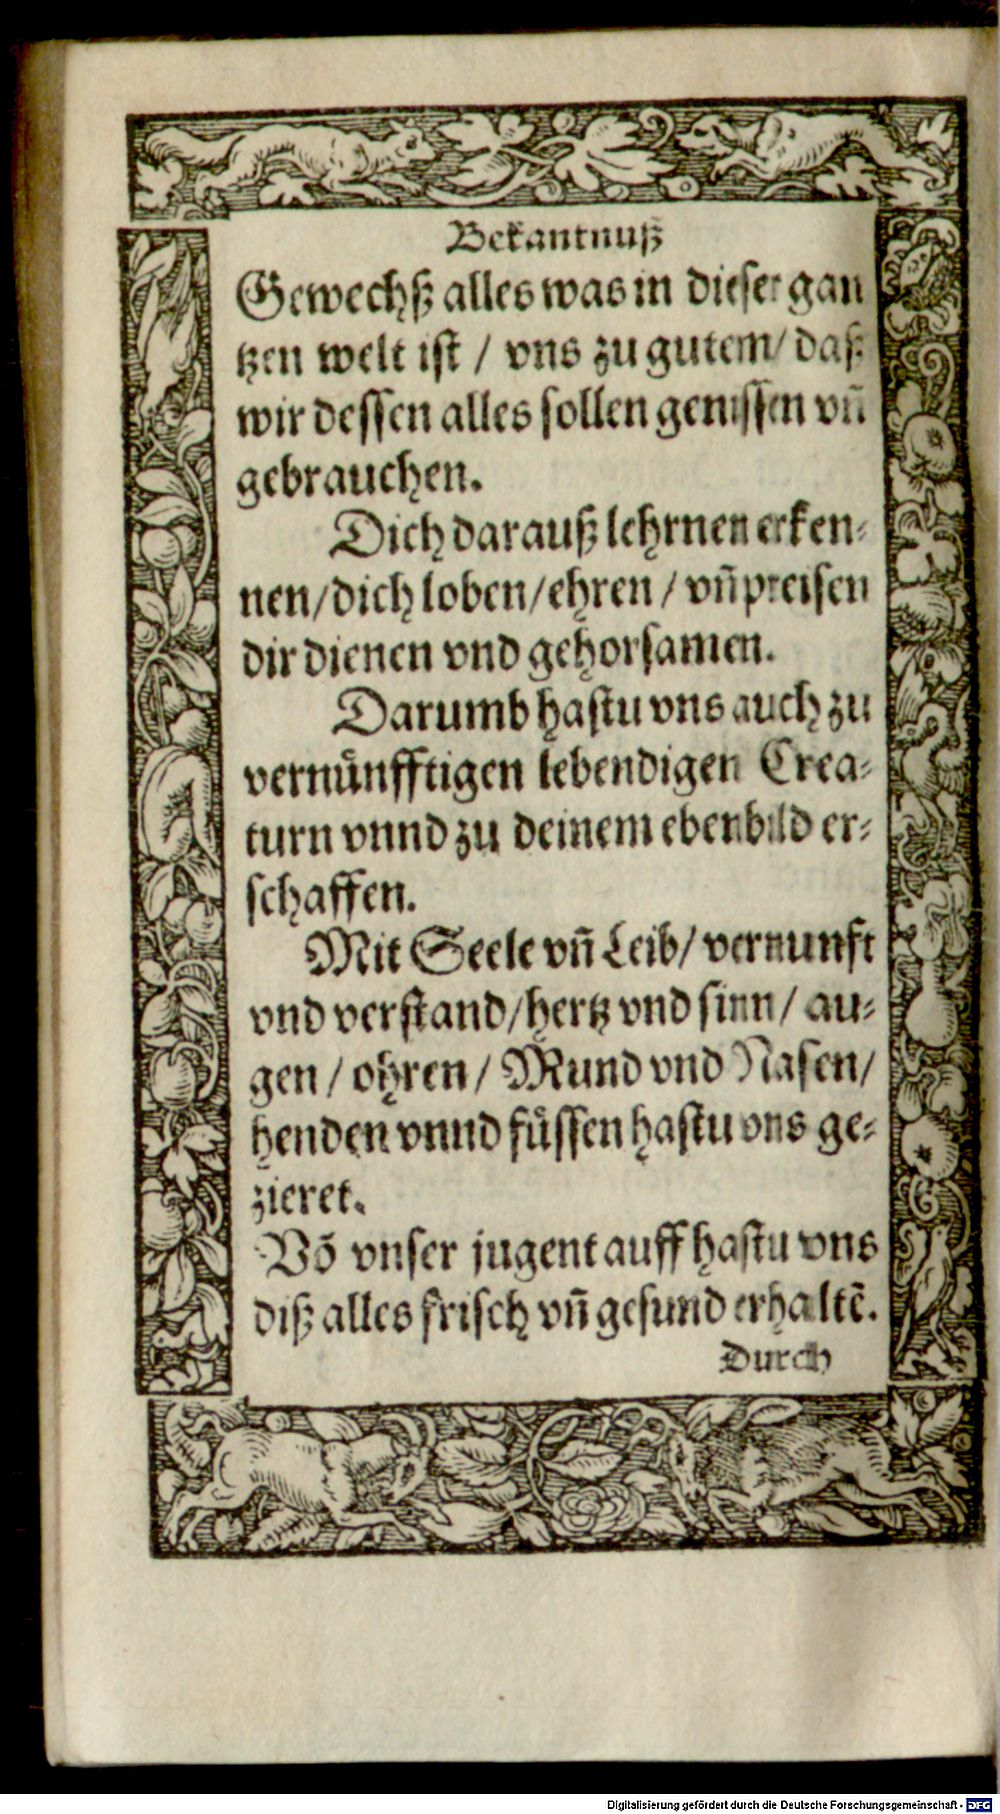 Bekantnuß
Gewechß alles was in dieser gan
tzen welt ist / vns zu gutem / daß
wir dessen alles sollen genissen vñ
gebrauchen.
Dich darauß lehrnen erken-
nen/dich loben/ehren / vñ preisen
dir dienen vnd gehorsamen.
Darumb hastu vns auch zu
vernünfftigen lebendigen Crea-
turn vnnd zu deinem ebenbild er-
schaffen.
Mit Seele vñ Leib/ vernunft
vnd verstand/hertz vnd sinn/ au-
gen / ohren / Mund vnd Nasen/
henden vnnd füssen hastu vns ge-
zieret.
Võ vnser jugent auff hastu vns
diß alles frisch vñ gesund erhaltẽ.
Durch
Digitalisierung gefördert durch die Deutsche Forschungsgemeinschaft - DFG